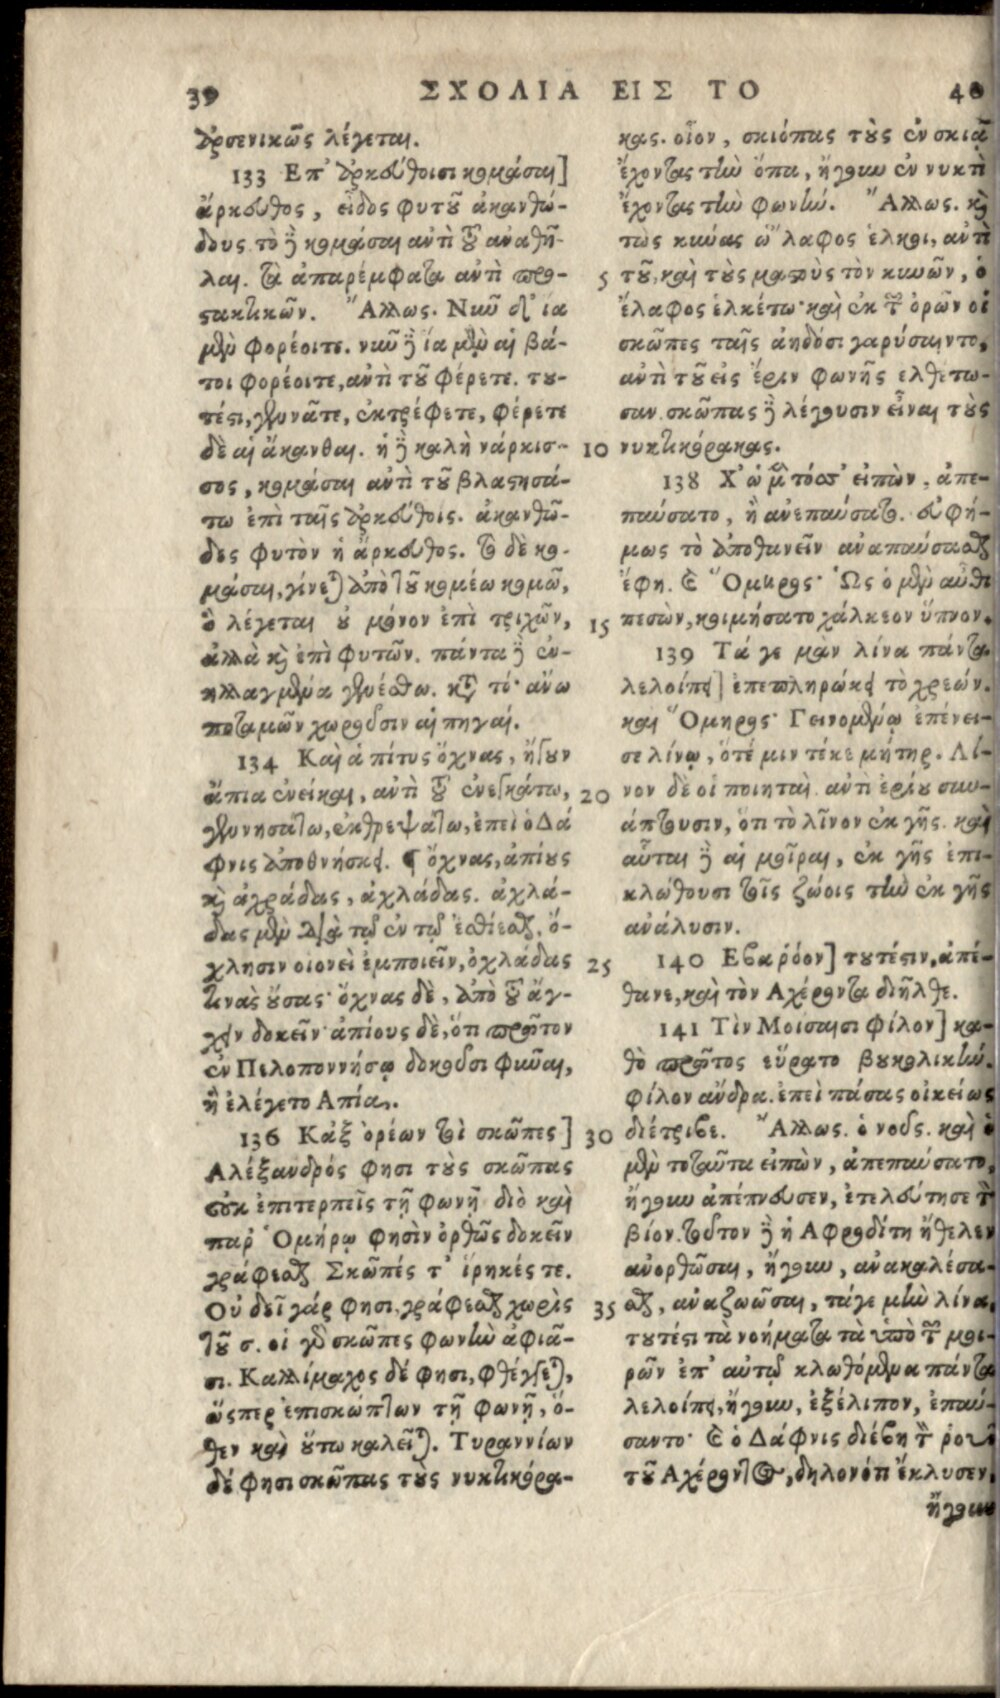 39 ΣΧΟΛΙΑ ΕΙΣ ΤΟ 40
ἀρσενικῶς λέγεται.
133 Επ' ἀρκεύθοισι κομάσαι]
ἄρκευθος, εἶδος φυτοῦ ἀκανθώ-
δους. τὸ δὲ κομάσαι ἀντὶ τοῦ ἀναθῆ-
λαι. τὰ ἀπαρέμφατα ἀντὶ προ-
στακτικῶν. Ἄλλως. Νῦν δ' ία
μὲν φορέοιτε. νῦν δὲ ἴα μὲν αἱ βά-
τοι φορέοιτε, ἀντὶ τοῦ φέρετε. του-
τέστι, γεννᾶτε, ἐκτρέφετε, φέρετε
δὲ αἱ ἄκανθαι. ἡ δὲ καλὴ νάρκισ-
σος, κομάσαι ἀντὶ τοῦ βλαστησά-
τω ἐπὶ ταῖς ἀρκεύθοις. ἀκανθῶ-
δες φυτὸν ἡ ἄρκευθος. τὸ δὲ κο-
μάσαι, γίνεται ἀπὸ τοῦ κομέω κομῶ,
ὃ λέγεται οὐ μόνον ἐπὶ τριχῶν,
ἀλλὰ καὶ ἐπὶ φυτῶν. πάντα δὲ ἐν-
ηλλαγμένα γενέσθω. κατὰ τό· ἄνω
ποταμῶν χωροῦσιν αἱ πηγαί.
134 Καὶ ἁ πίτυς ὄχνας, ἤγουν
ἄπια ἐνείκαι, ἀντὶ τοῦ ἐνεγκάτω,
γεννησάτω, ἐκθρεψάτω, ἐπεὶ ὁ Δά
φνις ἀποθνήσκει. ¶ ὄχνας, ἀπίους
καὶ ἀχράδας, ἀχλάδας. ἀχλά-
δας μὲν διὰ τῷ ἐν τῷ ἐσθίεσθαι, ὄ-
χλησιν οἱονεὶ ἐμποιεῖν, ὀχλάδας
τινὰς οὔσας· ὄχνας δὲ, ἀπὸ τοῦ ἄγ-
χειν δοκεῖν· ἀπίους δὲ, ὅτι πρῶτον
ἐν Πελοποννήσῳ δοκοῦσι φυῆναι,
ἢ ἐλέγετο Απία.
136 Κἀξ ὀρέων τοὶ σκῶπες]
Αλέξανδρός φησι τοὺς σκῶπας
οὐκ ἐπιτερπεῖς τῇ φωνῇ διὸ καὶ
παρ' Ὁμήρῳ φησὶν ὀρθῶς δοκεῖν
γράφεσθαι Σκῶπές τ' ἴρηκές τε.
Οὐ δεῖ γάρ φησι γράφεσθαι χωρὶς
τοῦ σ. οἱ γὰρ σκῶπες φωνὴν ἀφιᾶ-
σι. Καλλίμαχος δέ φησι, φθέγγεται,
ὥσπερ ἐπισκώπτων τῇ φωνῇ, ὅ-
θεν καὶ οὕτω καλεῖται. Τυραννίων
δέ φησι σκῶπας τοὺς νυκτικόρα-
κας. οἷον, σκιόπας τοὺς ἐν σκιᾷ
ἔχοντας τὴν ὄπα, ἤγουν ἐν νυκτὶ
ἔχοντας τὴν φωνήν. Ἄλλως. καὶ
τὼς κύνας ὦ 'λαφος ἕλκοι, ἀντὶ
5 τοῦ, καὶ τοὺς μαστοὺς τὸν κυνῶν, ὁ
ἔλαφος ἑλκέτω· καὶ ἐκ τῶν ὀρῶν οἱ
σκῶπες ταῖς ἀηδόσι γαρύσαιντο,
ἀντὶ τοῦ εἰς ἔριν φωνῆς ελθέτω-
σαν. σκῶπας δὲ λέγουσιν εἶναι τοὺς
10 νυκτικόρακας.
138 Χ' ὠ μὲν τόσσ' εἰπὼν, ἀπε-
παύσατο, ἢ ἀνεπαύσατο. εὐφή-
μως τὸ ἀποθανεῖν ἀναπαύσασθαι
ἔφη. καὶ Ὅμηρος· Ὣς ὁ μὲν αὖθι
15 πεσὼν, κοιμήσατο χάλκεον ὕπνον.
139 Τά γε μὰν λίνα πάντα
λελοίπει] ἐπεπληρώκει τὸ χρεών.
καὶ Ὅμηρος· Γεινομένῳ ἐπένει-
σε λίνῳ, ὅτέ μιν τέκε μήτηρ. Λί-
20 νον δὲ οἱ ποιηταὶ ἀντὶ ἐρίου συν-
άπτουσιν, ὅτι τὸ λῖνον ἐκ γῆς. καὶ
αὗται δὲ αἱ μοῖραι, ἐκ γῆς ἐπι-
κλώθουσι τοῖς ζώοις τὴν ἐκ γῆς
ἀνάλυσιν.
25 140 Εβα ῥόον] τουτέστιν, ἀπέ-
θανε, καὶ τὸν Αχέροντα διῆλθε.
141 Τὶν Μοίσαισι φίλον] κα-
θὸ πρῶτος εὕρατο βουκολικήν.
φίλον ἄνδρα. ἐπεὶ πάσας οἰκείως
30 διέτριβε. Ἄλλως. ὁ νοῦς. καὶ ὁ
μὲν τοσαῦτα εἰπὼν, ἀπεπαύσατο,
ἤγουν ἀπέπνευσεν, ἐτελεύτησε τὸν
βίον. τοῦτον δὲ ἡ Αφροδίτη ἤθελεν
ἀνορθῶσαι, ἤγουν, ἀνακαλέσα-
35 σθαι, ἀναζωῶσαι, τάγε μὴν λίνα,
τουτέστι τὰ νοήματα τὰ ὑπὸ τῶν μοι-
ρῶν ἐπ' αὐτῷ κλωθόμενα πάντα
λελοίπει, ἤγουν, ἐξέλιπον, ἐπαύ-
σαντο· καὶ ὁ Δάφνις διέβη τὸν ῥοῦν
τοῦ Αχέροντος, δηλονότι ἔκλυσεν,
ἤγουν